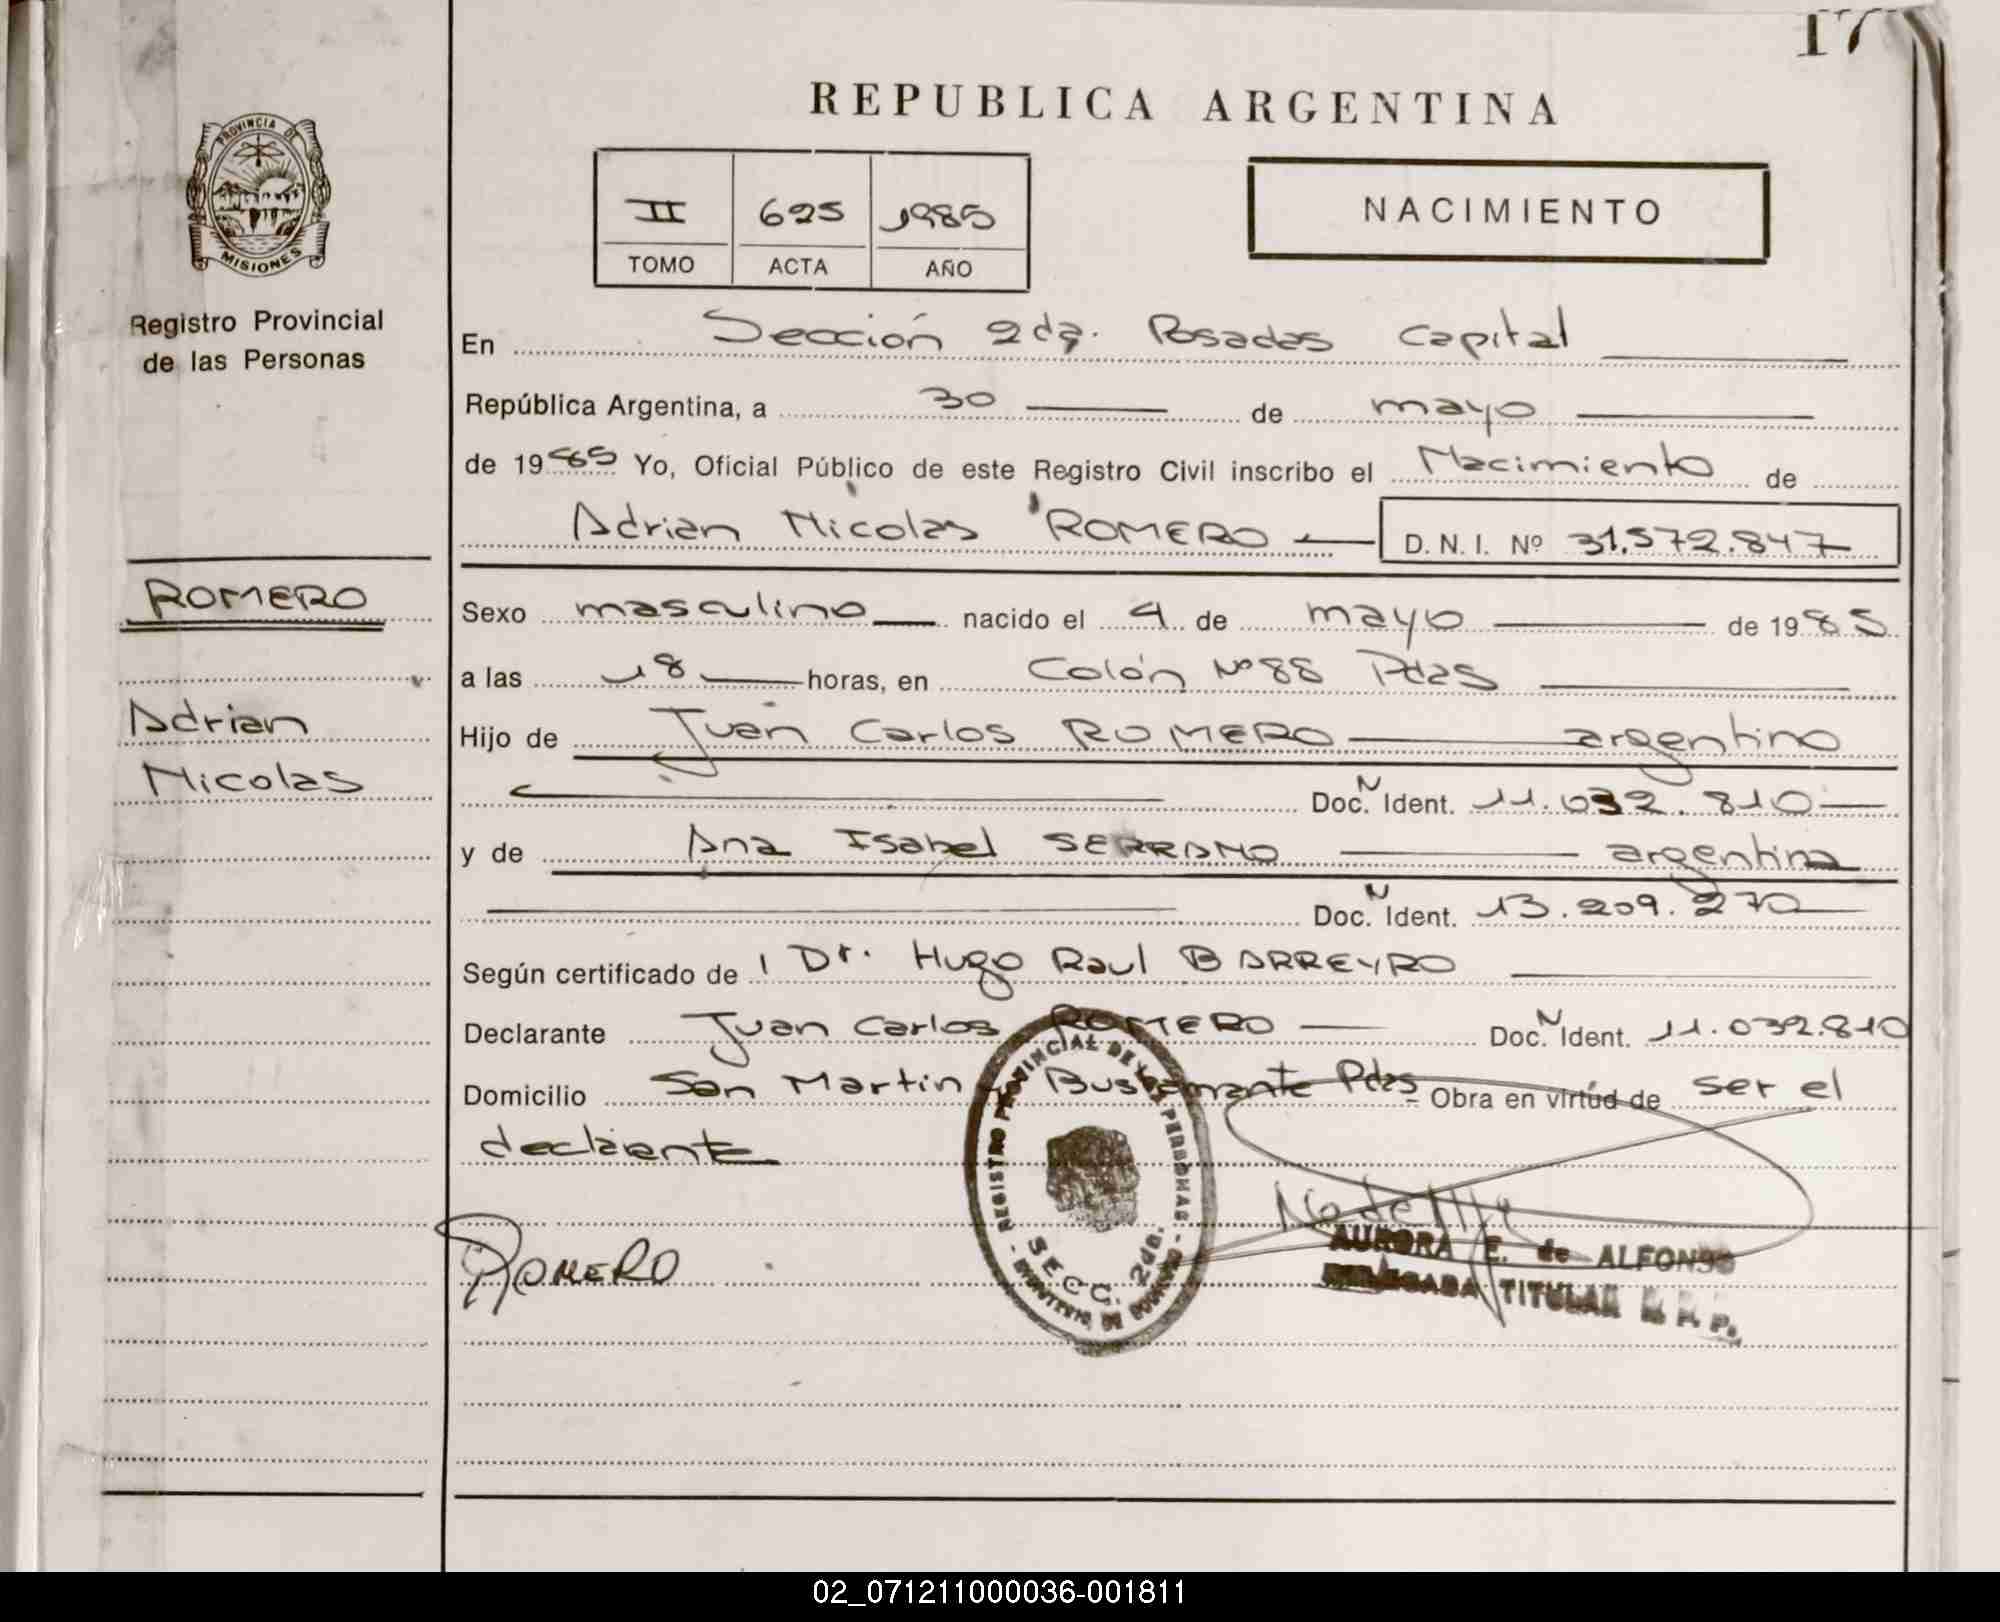 17
REPUBLICA ARGENTINA
PROVINCIA DE
MISIONES
Registro Provincial
de las Personas
II 625 1985
TOMO ACTA AÑO
NACIMIENTO
En Sección 2da. Posadas Capital
República Argentina, a 30 de mayo
de 1985 Yo, Oficial Público de este Registro Civil inscribo el Nacimiento de
Adrian Nicolas ROMERO D. N. I. Nº 31.572.847
ROMERO
Adrian
Nicolas
Sexo masculino nacido el 4 de mayo de 1985
a las 18 horas, en Colón Nº 88 Pdas
Hijo de Juan Carlos ROMERO argentino
Doc. N Ident. 11.032.810
y de Ana Isabel SERRANO argentina
Doc. N Ident. 13.209.270
Según certificado de Dr. Hugo Raul BARREYRO
Declarante Juan Carlos ROMERO Doc. N Ident. 11.032.810
Domicilio San Martin y Bustamante Pdas Obra en virtúd de ser el
declarante
ROMERO
REGISTRO PROVINCIAL DE LAS PERSONAS
SECC. 2da.
AURORA E. de ALFONSO
DELEGADA TITULAR R. P. P.
02_071211000036-001811